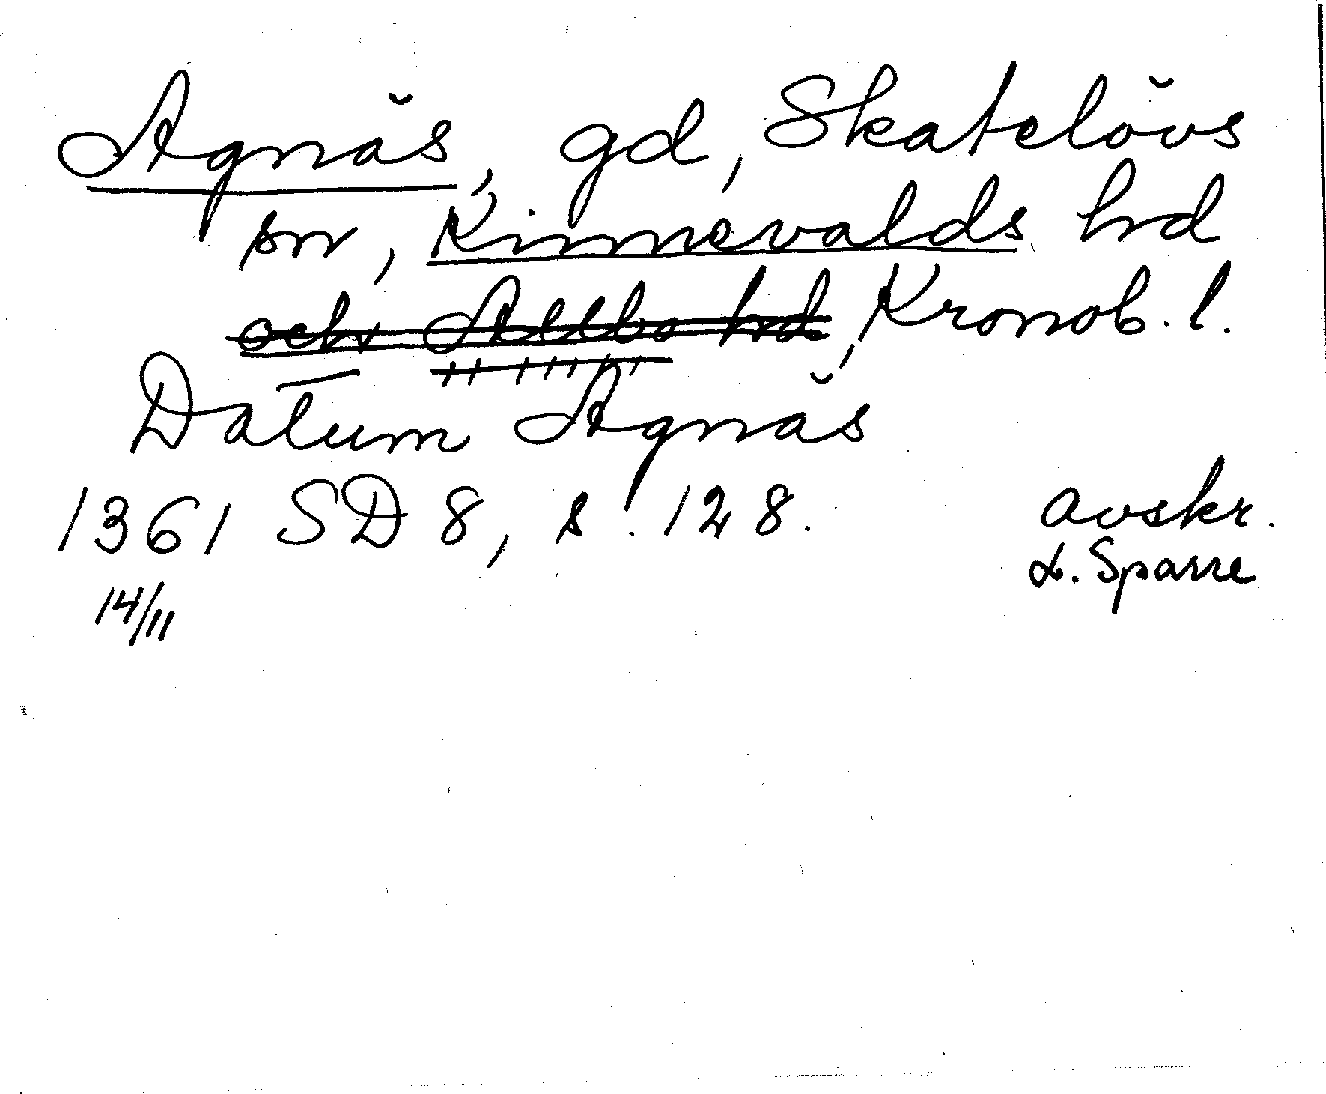 Agnäs, gd, Skatelövs
sn, Kinnevalds hd
och Allbo hd, Kronob. l.
Datum Agnäs
1361 SD 8, s. 128.
14/11
avskr.
L. Sparre